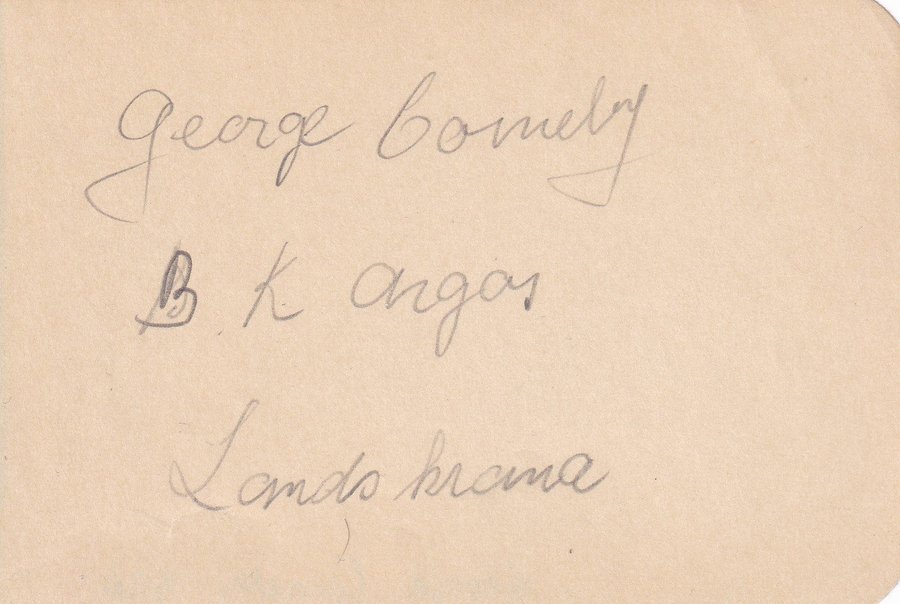 George Comely
B K Argos
Landskrona